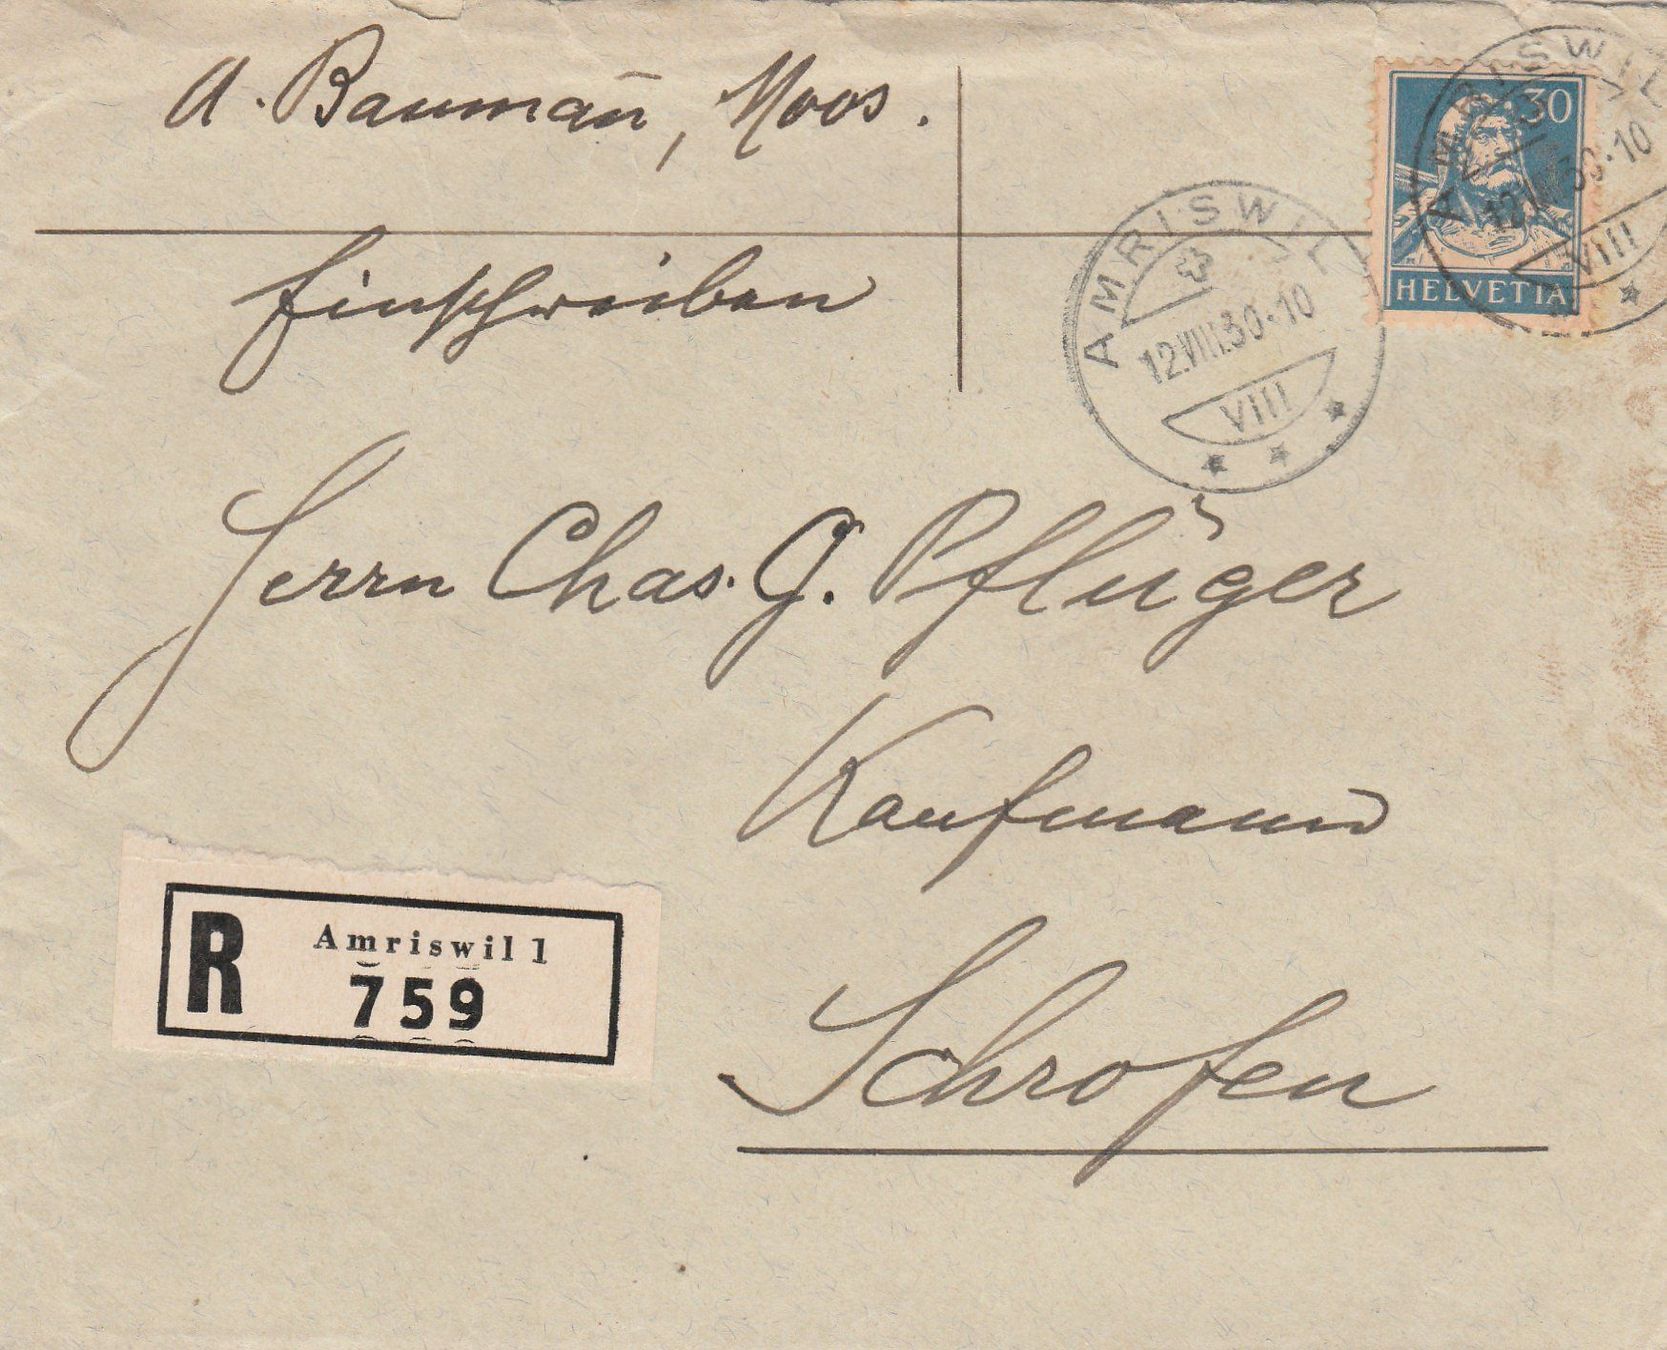 A. Baumañ, Moos.
Einschreiben
AMRISWIL
12.VIII.30.10
VIII
30
HELVETIA
AMRISWIL
12.VIII.30.10
VIII
Herrn Chas. G. Pflüger
Kaufmann
Schrofen
R Amriswil 1
759